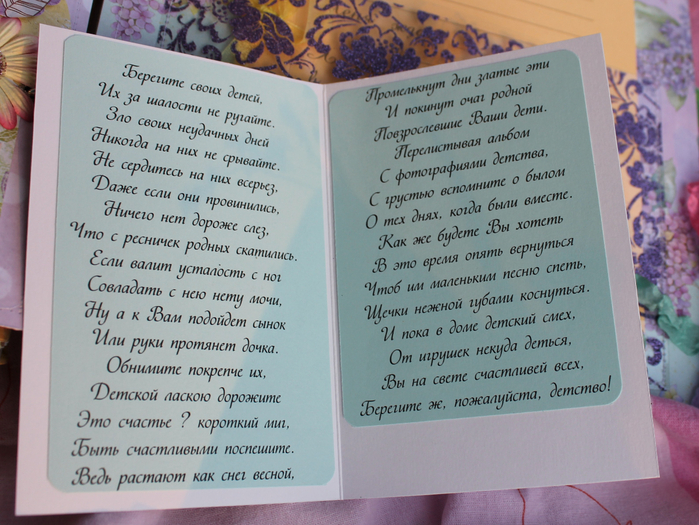 Берегите своих детей,
Их за шалости не ругайте.
Зло своих неудачных дней
Никогда на них не срывайте.
Не сердитесь на них всерьез,
Даже если они провинились,
Ничего нет дороже слез,
Что с ресничек родных скатились.
Если валит усталость с ног
Совладать с нею нету мочи,
Ну а к Вам подойдет сынок
Или руки протянет дочка.
Обнимите покрепче их,
Детской ласкою дорожите
Это счастье ? короткий миг,
Быть счастливыми поспешите.
Ведь растают как снег весной,
Промелькнут дни златые эти
И покинут очаг родной
Повзрослевшие Ваши дети.
Перелистывая альбом
С фотографиями детства,
С грустью вспомните о былом
О тех днях, когда были вместе.
Как же будете Вы хотеть
В это время опять вернуться
Чтоб им маленьким песню спеть,
Щечки нежной губами коснуться.
И пока в доме детский смех,
От игрушек некуда деться,
Вы на свете счастливей всех,
Берегите ж, пожалуйста, детство!